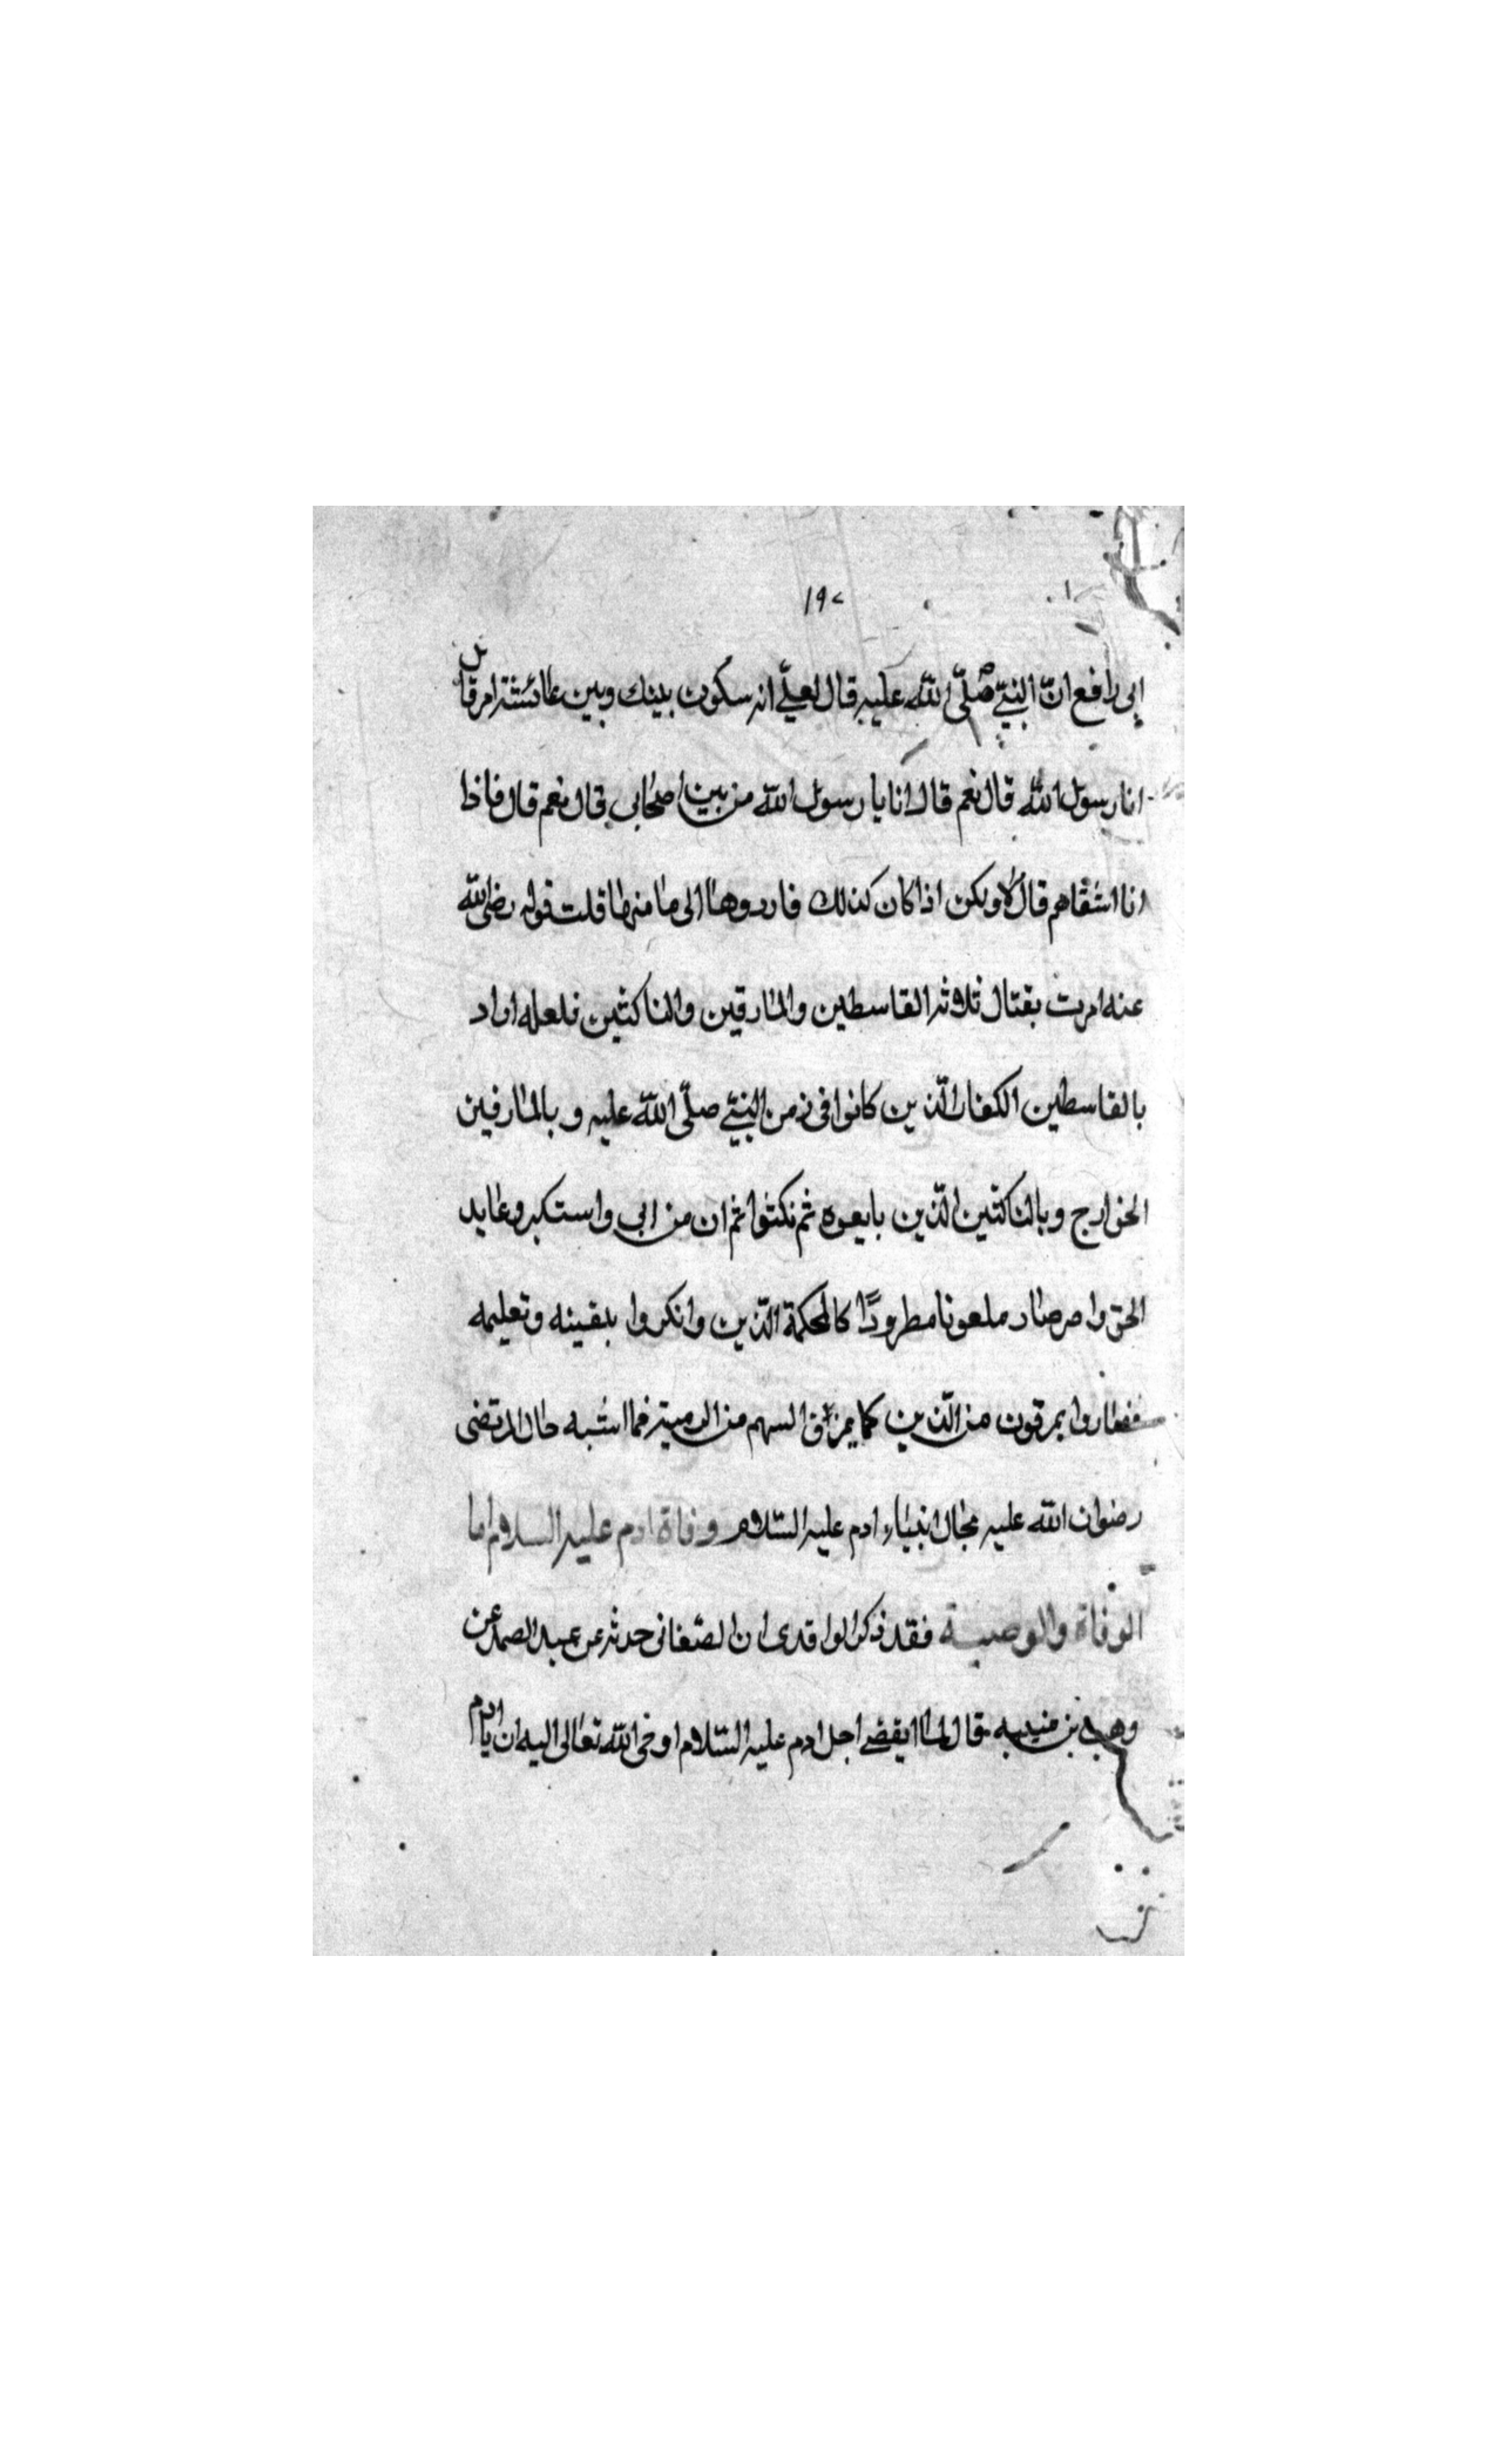 ١٩٢
ابى رافع انّ النبىّ صلّى اللّه عليه قال لعلىّ انه سيكون بينك وبين عائشة امر قال
انا رسول اللّه قال نعم قال انا يا رسول اللّه من بين اصحابى قال نعم قال فاذا
انا اشقاهم قال لا ولكن اذا كان كذلك فارددوها الى مامنها قلت قوله رضى اللّه
عنه امرت بقتال ثلاثه القاسطين والمارقين والناكثين فلعله اراد
بالقاسطين الكفار الّذين كانوا فى زمن النبىّ صلّى اللّه عليه وبالمارقين
الخوارج وبالناكثين الّذين بايعوه ثم نكثوا ثم ان من ابى واستكبر وعايد
الحق واصر صار ملعونا مطرودًا كالمحكمة الّذين وانكروا بيقينه وتعليمه
فصاروا يمرقون من الّذين كما يمرق السهم من الرمية فما اشبه حال المرتضى
رضوان اللّه عليه بحال انبياء ادم عليه السّلام وفاة ادم عليه السلام اما
الوفاة والوصية فقد ذكر الواقدى ان الصّغانى حدثه عن عبد الصمد عن
وهب بن منبه قال لما انقضى اجل ادم عليه السّلام اوحى اللّه تعالى اليه ان يا ادم